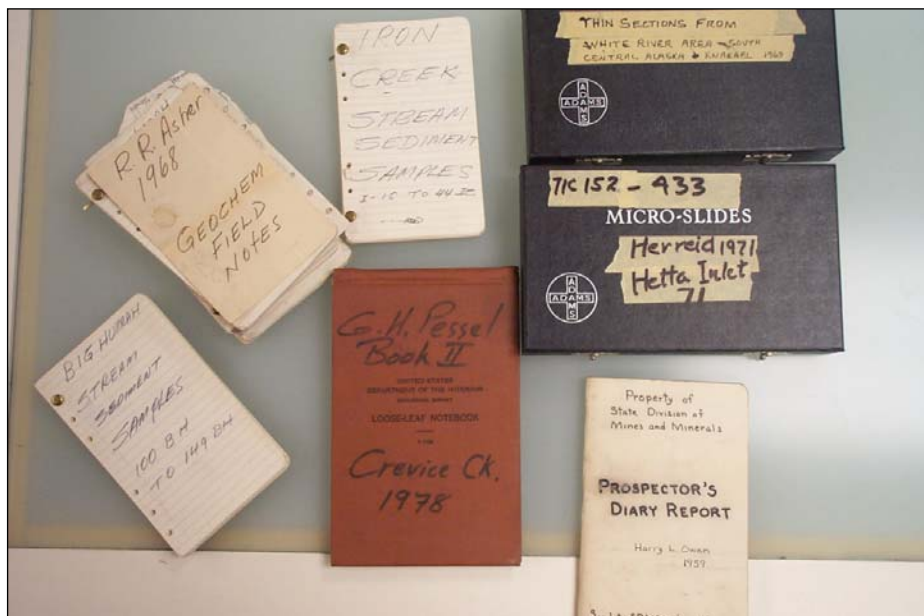 R. R. Asher
1968
GEOCHEM
FIELD
NOTES
IRON
CREEK
STREAM
SEDIMENT
SAMPLES
THIN SECTIONS FROM
WHITE RIVER AREA - SOUTH
CENTRAL ALASKA
ADAMS
ADAMS
71C 152 - 433
MICRO-SLIDES
Herreid 1971
Hetta Inlet
71
ADAMS
ADAMS
BIG HUMAH
STREAM
SEDIMENT
SAMPLES
100 BH
TO 149 BH
G. H. Pessel
Book II
UNITED STATES
DEPARTMENT OF THE INTERIOR
GEOLOGICAL SURVEY
LOOSE-LEAF NOTEBOOK
Crevice Ck.
1978
Property of
State Division of
Mines and Minerals
PROSPECTOR'S
DIARY REPORT
Harry L. Owen
1959